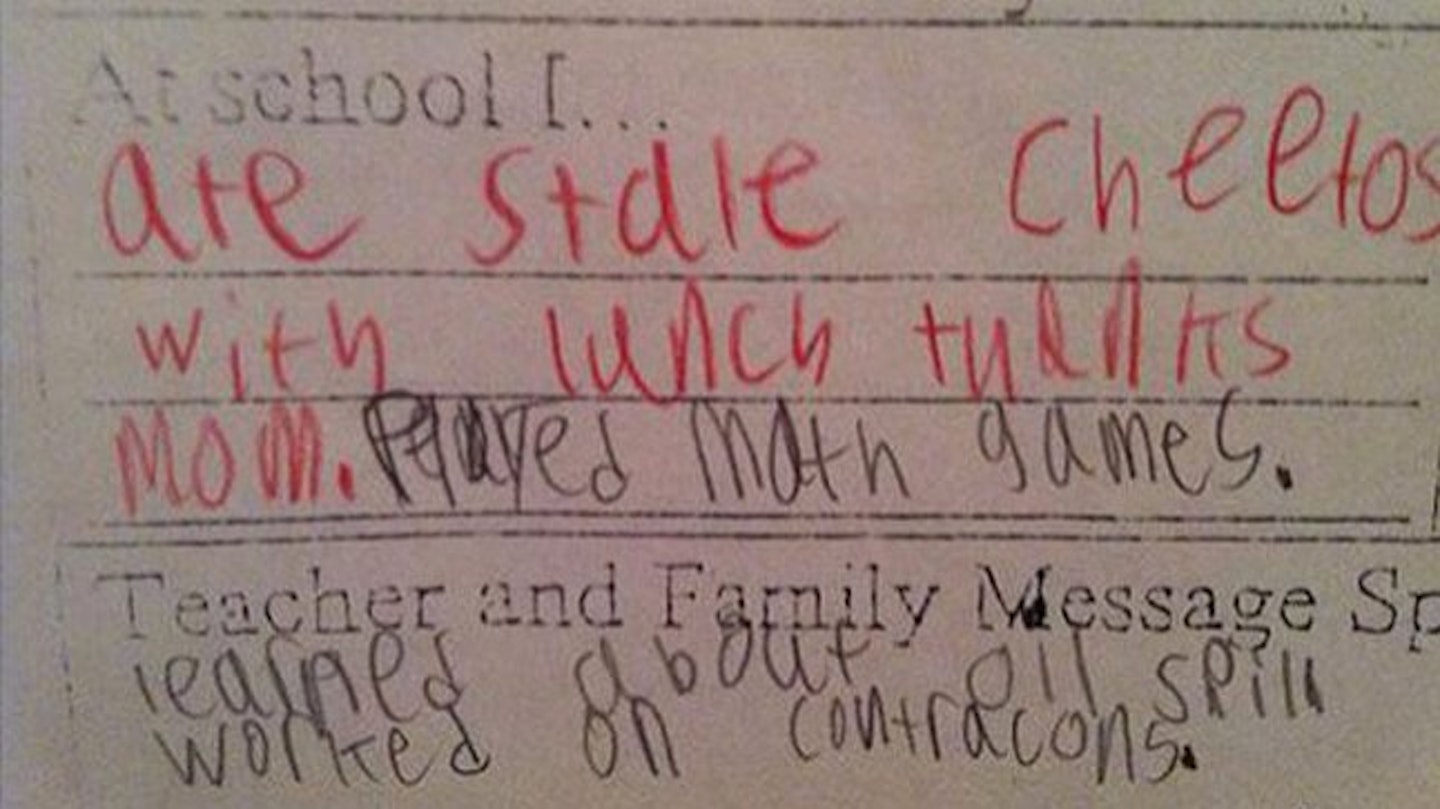 At school I...
ate stale Cheetos
with lunch thanks
Mom. Played math games.
Teacher and Family Message Sp
learned about oil spill
worked on contracons.